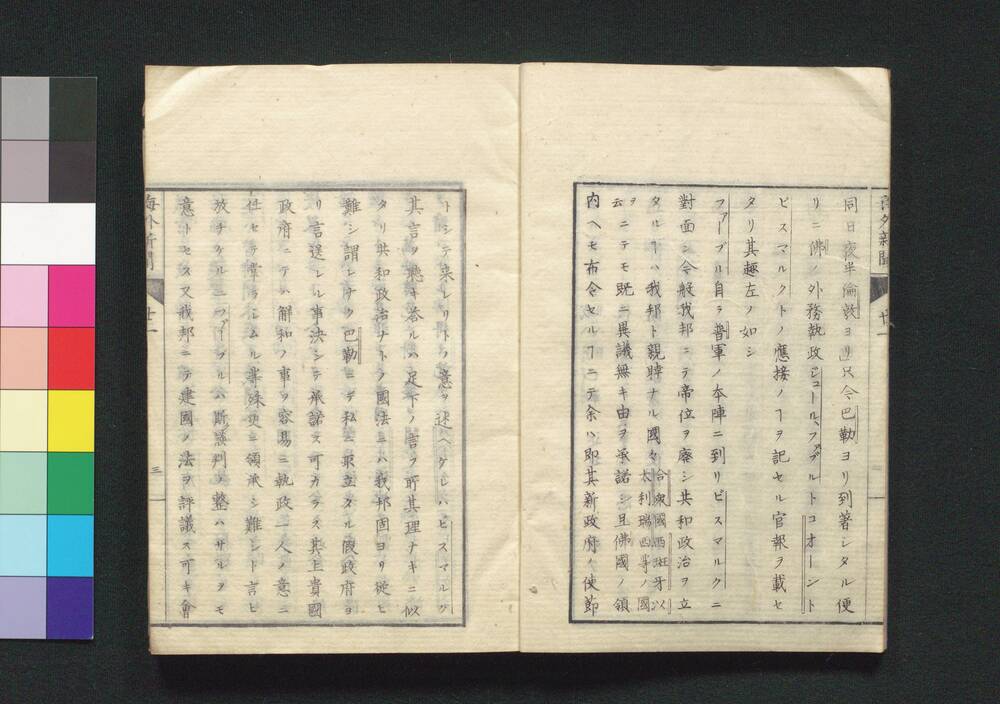 同日夜半倫敦ヨリ只今巴勒ヨリ到著シタル便
リニ佛ノ外務執政ジュールファブルトコオーント
ビスマルクトノ應接ノヿヲ記セル官報ヲ載セ
タリ其趣左ノ如シ
ファーブル自ラ普軍ノ本陣ニ到リビスマルクニ
對面シ今般我邦ニテ帝位ヲ廢シ共和政治ヲ立
タルヿハ我邦ト親睦ナル國々
合衆國西班牙以
太利瑞西等ノ國
ヲ
云
ニテモ既ニ異議無キ由ヲ承諾シ且佛國ノ領
内ヘモ布令セルヿニテ余ハ即其新政府ノ使節
トシテ來レリトノ意ヲ述ヘケレハビスマルク
其言ヲ聽キ答ルハ足下ノ言フ所其理ナキニ似
タリ共和政治ナトヲ國法ニハ我邦固ヨリ從ヒ
難シ謂レナク巴勒ニテ私ニ取立タル假政府ヨ
リ言送レル事決シテ承諾ス可カラス其上貴國
政府ニテハ解和ノ事ヲ容易ニ執政一人ノ意ニ
任セテ掌ラシムル等殊更ニ領承シ難シト言ヒ
放チケルニファーブルハ斯談判ノ整ハサルヲモ
意トセス又我邦ニテ建國ノ法ヲ評議ス可キ會
海外新聞
廿一
三